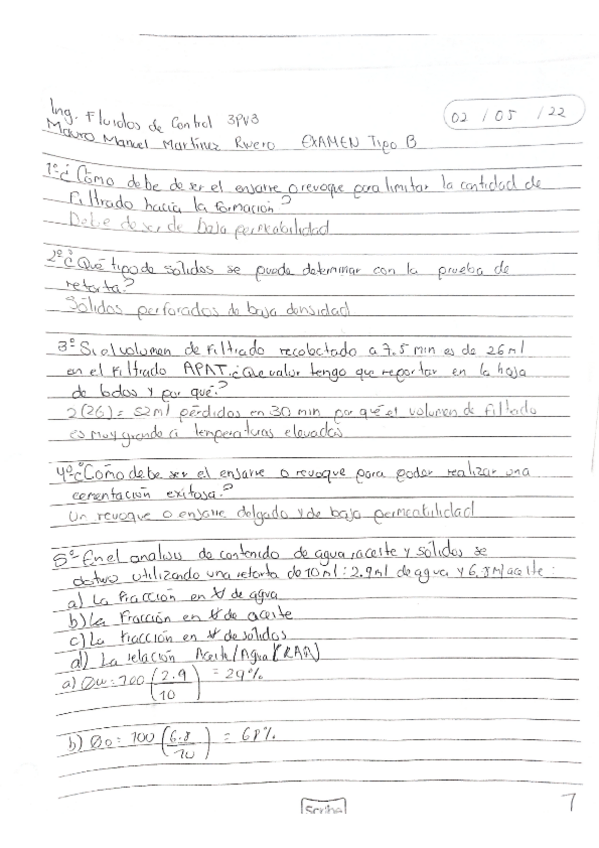 Ing. Fluidos de Control 3PV3
02 / 05 / 22
Mauro Manuel Martínez Rivero EXAMEN Tipo B
1º ¿Cómo debe de ser el enjarre o revoque para limitar la cantidad de
Filtrado hacia la formación?
Debe de ser de baja permeabilidad
2º ¿Qué tipo de sólidos se puede determinar con la prueba de
retorta?
Sólidos perforados de baja densidad
3º Si el volumen de Filtrado recolectado a 7.5 min es de 26ml
en el Filtrado APAT, ¿Que valor tengo que reportar en la hoja
de lodos y por qué?
2(26) = 52ml pérdidos en 30 min por qué el volumen de filtado
es muy grande a temperaturas elevadas
4º ¿Cómo debe ser el enjarre o revoque para poder realizar una
cementación exitosa?
Un revoque o enjarre delgado y de baja permeabilidad
5º En el analisis de contenido de agua, aceite y sólidos se
obtuvo utilizando una retorta de 10ml: 2.9ml de agua y 6.8ml aceite:
a) La Fracción en V de agua
b) La Fracción en V de aceite
c) La Fracción en V de sólidos
d) La relación Aceite/Agua (RAA)
a) Øw = 100 (2.9/10) = 29%
b) Øo = 100 (6.8/10) = 68%
Scribe
7